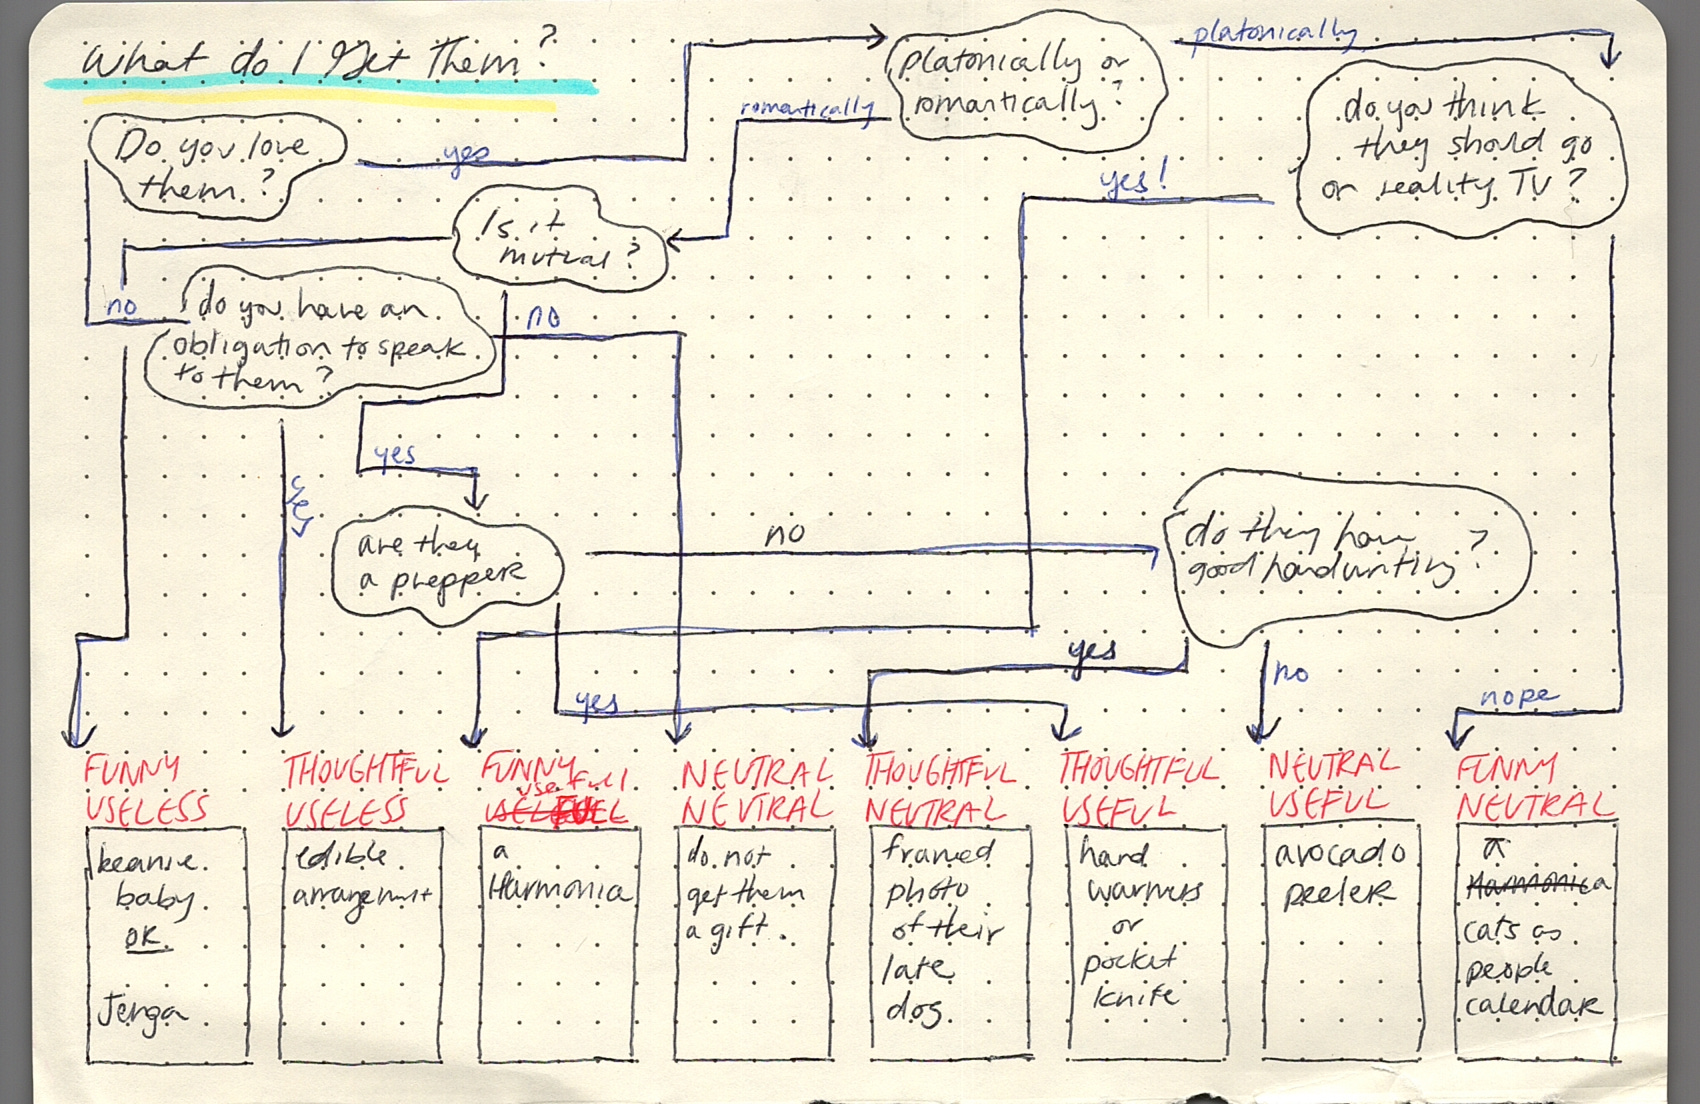 What do I Get Them?
Do you love
them?
yes
platonically or
romantically?
platonically
romantically
do you think
they should go
or reality TV?
yes!
Is it
mutual?
no
do you have an
obligation to speak
to them?
no
yes
yes
are they
a prepper
no
do they have
good handwriting?
yes
yes
no
nope
FUNNY
USELESS
beanie
baby
OK
Jenga
THOUGHTFUL
USELESS
edible
arrangement
FUNNY
usefull
a
Harmonia
NEUTRAL
NEUTRAL
do not
get them
a gift.
THOUGHTFUL
NEUTRAL
framed
photo
of their
late
dog.
THOUGHTFUL
USEFUL
hand
warmers
or
pocket
knife
NEUTRAL
USEFUL
avocado
peeler
FUNNY
NEUTRAL
a
Harmonica
cats as
people
calendar